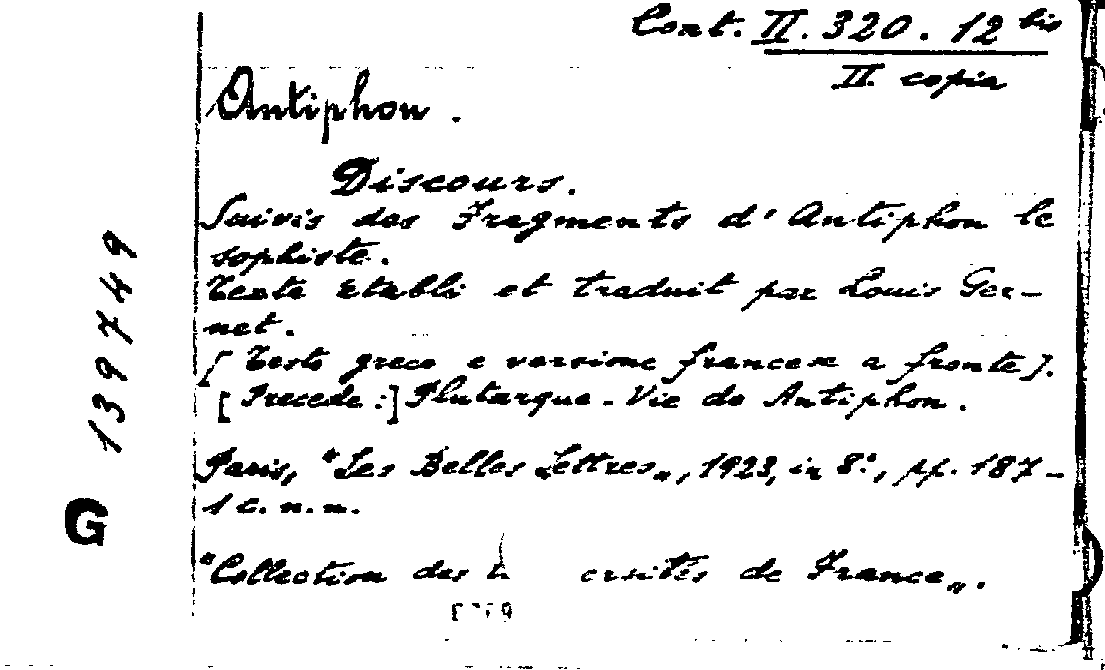 Cont. II. 320. 12 bis
II copia
Antiphon.
Discours.
Suivis des Fragments d'Antiphon le
sophiste.
Texte etabli et traduit par Louis Ger-
net.
[Testo greco e versione francese a fronte].
[Precede:] Plutarque - Vie de Antiphon.
Paris, "Les Belles Lettres„, 1923, in 8º, pp. 187-
1 c. n. n.
"Collection des ersités de France„.
139749
G